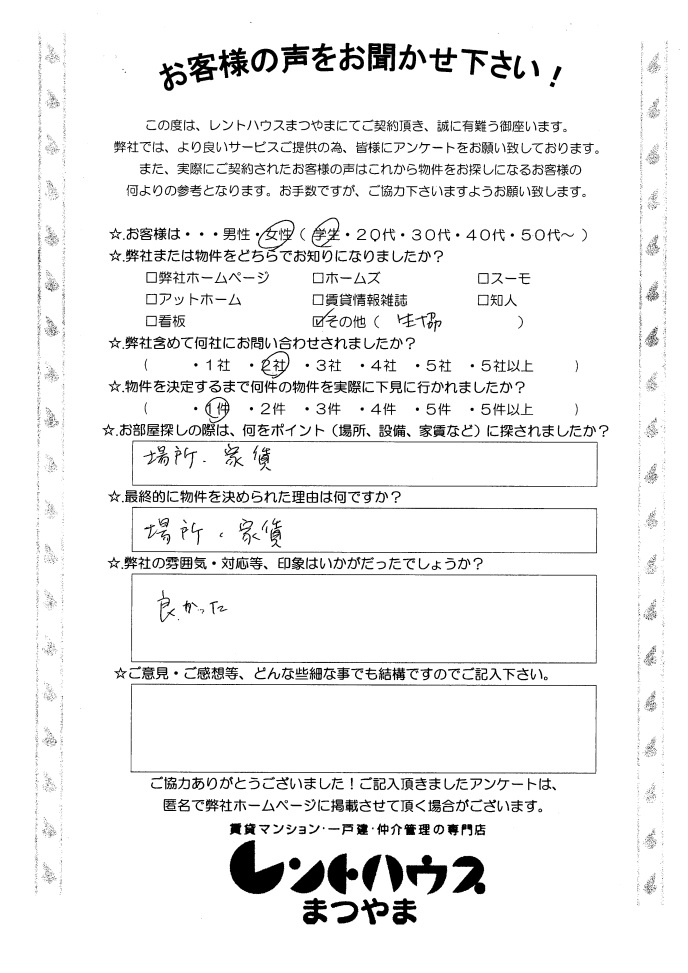 お客様の声をお聞かせ下さい!
この度は、レントハウスまつやまにてご契約頂き、誠に有難う御座います。
弊社では、より良いサービスご提供の為、皆様にアンケートをお願い致しております。
また、実際にご契約されたお客様の声はこれから物件をお探しになるお客様の
何よりの参考となります。お手数ですが、ご協力下さいますようお願い致します。
☆.お客様は・・・男性・女性(学生・20代・30代・40代・50代〜)
☆.弊社または物件をどちらでお知りになりましたか?
□弊社ホームページ □ホームズ □スーモ
□アットホーム □賃貸情報雑誌 □知人
□看板 ☑その他( 生協 )
☆.弊社含めて何社にお問い合わせされましたか?
( ・1社 ・2社 ・3社 ・4社 ・5社 ・5社以上 )
☆.物件を決定するまで何件の物件を実際に下見に行かれましたか?
( ・1件 ・2件 ・3件 ・4件 ・5件 ・5件以上 )
☆.お部屋探しの際は、何をポイント(場所、設備、家賃など)に探されましたか?
場所、家賃
☆.最終的に物件を決められた理由は何ですか?
場所、家賃
☆.弊社の雰囲気・対応等、印象はいかがだったでしょうか?
良かった
☆ご意見・ご感想等、どんな些細な事でも結構ですのでご記入下さい。
ご協力ありがとうございました!ご記入頂きましたアンケートは、
匿名で弊社ホームページに掲載させて頂く場合がございます。
賃貸マンション・一戸建・仲介管理の専門店
レントハウス
まつやま